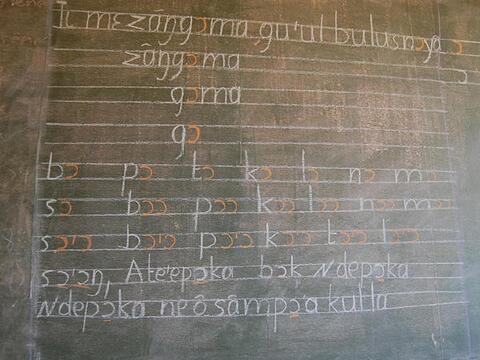 Tu mɛ zâŋgɔma, gu'ul bulusnɔya
zâŋgɔma
gɔma
gɔ
bɔ pɔ tɔ kɔ lɔ nɔ mɔ
sɔ bɔɔ pɔɔ kɔɔ lɔɔ nɔɔ mɔ
sɔ'ɔ bɔ'ɔ pɔ'ɔ kɔɔ tɔɔ lɔɔ
sɔ'ɔŋ, Ate'epɔka bɔk Ndepɔka
Ndepɔka ne ô sâmpɔa kulla